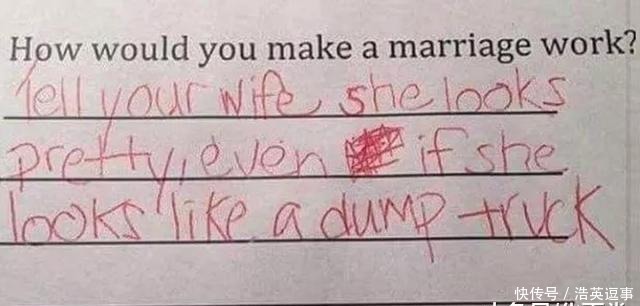 How would you make a marriage work?
Tell your wife she looks
pretty, even if she
looks like a dump truck
快传号 / 浩英逗事